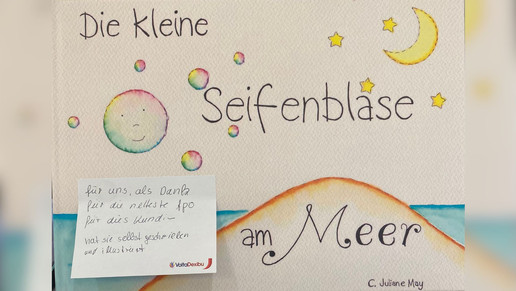 Die kleine
Seifenblase
am Meer
C. Juliane May
für uns, als Dank
für die netteste Apo
für dies Kund:-
hat sie selbst geschrieben
und illustriert
VoltaDexibu